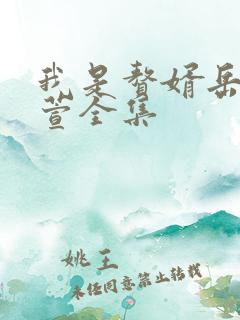 我是赘婿岳
萱全集
姚王
未经同意禁止转载